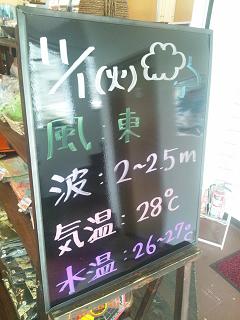 11/1(火)
風:東
波:2~2.5m
気温:28℃
水温:26~27℃